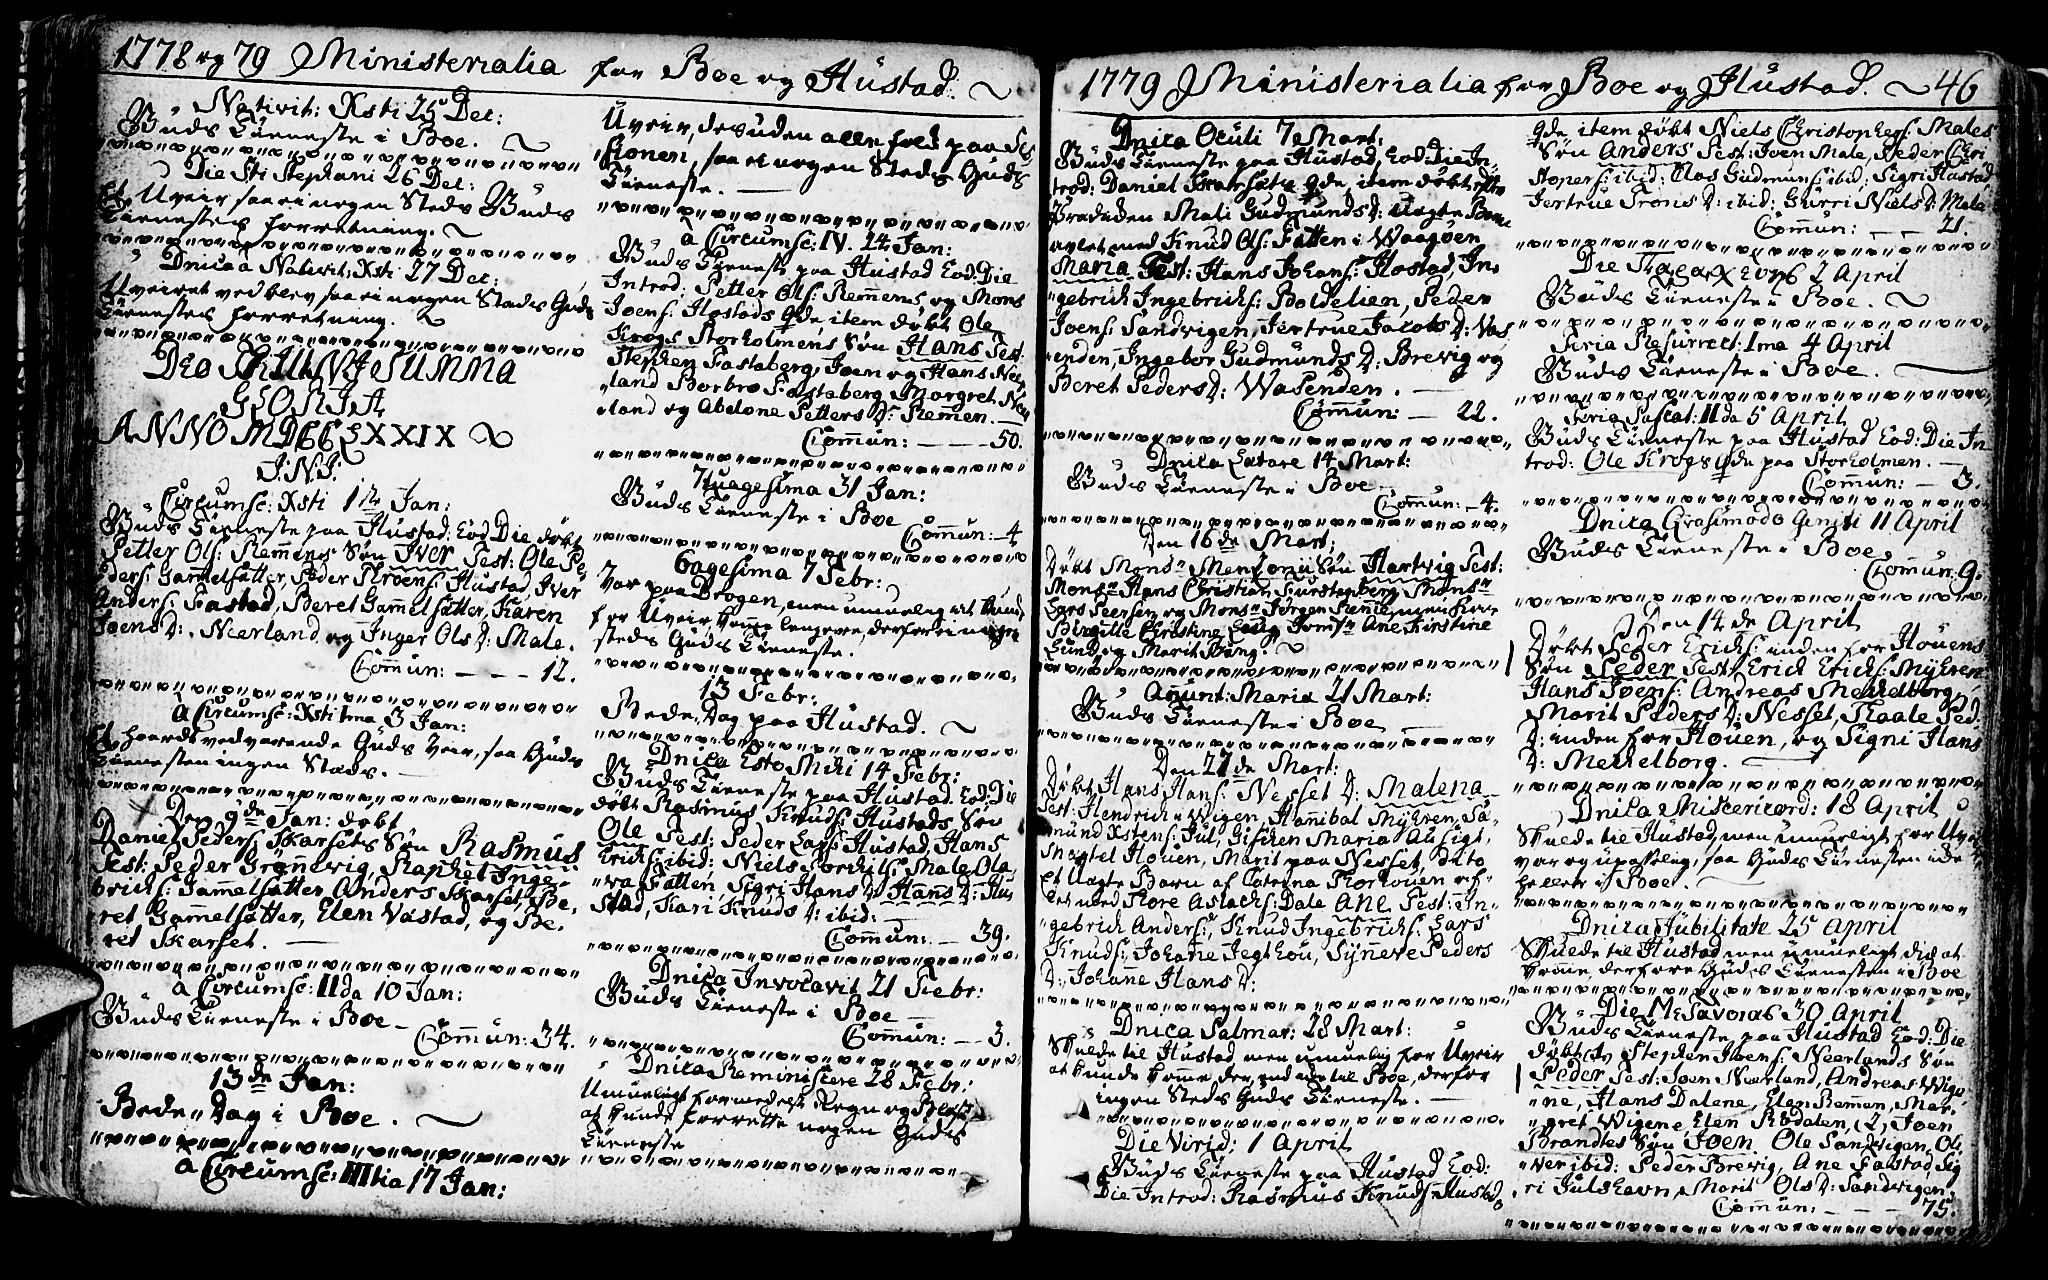 1778 og 79 Ministerialia for Boe og Hustad.
Nativit: Xsti 25 Dec:
Guds Tieneste i Boe.
Die Sti Stephani 26 Dec:
Et Uveir saa ei nogen Steds Guds
Tienestes forretning.
Dnica à Nativit: Xsti 27 Dec:
Uveiret vedblev saa ei nogen Stads Guds
Tienestes forretning.
DEO
SUMMA
GLORIA
ANNO MDCCLXXIX
J.N.J.
Circumsc: Xsti 1 Jan:
Guds Tieneste paa Hustad, Eod: Die døbt
Petter Ols: Remmens Søn Iver Test: Ole Pe-
ders: Gammelsætter, Peder Hustad, Iver
Anders: Fastad, Beret Gammelsætter, Karen
Joens D: Neerland og Inger Ols D: Male.
Comun: - - - 12.
à Circumsc: Xsti Ima 3 Jan:
Et haardt vedvarende Guds Veir, saa Guds
Tienesten ingen Stads.
Den 9de Jan: døbt
Daniel Peders: Skarsets Søn Rasmus
Test: Peder Grønevig, Raphel Inge-
brichs: Gammelsætter Anders Skarset, Be-
ret Gammelsætter, Elen Vastad, og Be-
ret Skarset.
à Circumsc: IIda 10 Jan:
Guds Tieneste i Boe
Comun: 34.
13de Jan:
Bede-Dag i Boe.
à Circumsc: IIItia 17 Jan:
Uveir, desuden alle folk paa
saa ei nogen Steds Guds
Tieneste.
à Circumsc: IV. 24 Jan:
Guds Tieneste paa Hustad Eod: Die
Introd: Petter Ols: Remmens og Mons
Joens: Hostads Qde, item døbt Ole
Krogs Storholmens Søn Hans Test:
Stephen Fastaberg, Joen og Hans Neer-
land Borbro Fastaberg Margret Neer-
land og Abelone Petters D: Remmen.
Comun: - - - 50.
7tuagesima 31 Jan:
Guds Tieneste i Boe
Comun: 4
6agesima 7 Febr:
Var paa Brogen, men umuelig at kund
for Uveir komme lengere, derfor ei nogen
steds Guds Tieneste.
13 Febr:
Bede-Dag paa Hustad.
Dnica Esto Mihi 14 Febr:
Guds Tieneste paa Hustad Eod: Die
døbt Rasmus Knuds: Hustads Søn
Ole Test: Peder Lars: Hustad, Hans
Erichs: ibid: Niels Torchils: Male, Ola-
va Fatten, Sigri Hans D: Hans D: Hus-
stad, Kari Knuds D: ibid:
Comun: - 39.
Dnica Invocavit 21 Febr:
Guds Tieneste i Boe
Comun: - - 3.
Dnica Reminiscere 28 Febr:
Umueligt formedelst Regn og Blæst
at kunde forrette nogen Guds
Tieneste
1779 Ministerialia for Boe og Hustad. 46
Dnica Oculi 7 Mart:
Guds Tieneste paa Hustad, Eod: Die In-
trod: Daniel Skarsets Qde, item døbt efter
Mali Gudmunds D: Uægte Barn
avlet med Knud Ols: Fatten i Waagøen
Maria Test: Hans Johans: Hostad, In-
gebrich Ingebrichs: Boldelien, Peder
Joens: Sandvigen, Jertrue Jacobs D: Vas-
enden, Ingebor Gudmunds D: Brevig og
Beret Peders D: Wasenden.
Comun: - 22.
Dnica Lætare 14 Mart:
Guds Tieneste i Boe
Comun: - 4.
Den 16de Mart:
Døbt Monsr Søn Hartvig Test:
Monsr Hans Christian Furstenberg Monsr
Lars Peersen og Monsr Jørgen
Birgitte Christine Ane Kirstine
Lund og Marit Bang.
Anunt: Mariæ 21 Mart:
Guds Tieneste i Boe
Den 27de Mart:
Døbt Hans Hans: Nesset D: Malena
Test: Hendrich Wigen, Hannibal Myhren, Sa-
mund Xstens: Jul, Gifken Maria Ausigt,
Magtel Houen, Marit paa Nesset, dito
et Uægte Barn af Catrina Korhouen af-
let med Tore Aslachs: Dale Ane Test: In-
gebrich Anders:, Knud Ingebrichs: Lars
Knuds: Johane Jegthou, Synneve Peders
D:, Johanne Hans D:
Dnica Palmar: 28 Mart:
Skulde til Hustad men umuelig for Uveir
at kunde komme der, end ei til Boe, derfor
ingen Steds Guds Tieneste.
Die Virid: 1 April
Guds Tieneste paa Hustad Eod:
Die Introd: Rasmus Knuds: Hustads
Qde, item døbt Niels Christophers: Males
Søn Anders Test: Joen Male, Peder Chri-
stopers: ibid: Clas Gudmuns: ibid: Sigri Hustad,
Jertrue Trons D: ibid: Gurri Niels D: Male
Comun: - - 21.
Die 2 April
Guds Tieneste i Boe.
Feria Resurrect: Ima 4 April
Guds Tieneste i Boe.
Feria Pascat: IIda 5 April
Guds Tieneste paa Hustad Eod: Die In-
trod: Ole Krogs Qde paa Storholmen.
Comun: - 3.
Dnica Qvasimodo Geniti 11 April
Guds Tieneste i Boe
Comun: 9.
Den 14de April
Døbt Peder Erichs: inden for Houens
Søn Peder Test: Erich Erichs: Myhren
Hans Joens: Andreas Mechelborg,
Marit Peders D: Nesset, Kaale Ped.
D: inden for Houen, og Signi Hans
D: Mechelborg.
Dnica Misericord: 18 April
Skulde til Hustad, men umueligt for Uveir
var og upaslig, saa Guds Tienesten ide
heller i Boe.
Dnica Jubilitate 25 April
Skulde til Hustad men umueligt did at
komme, derfore Guds Tienesten i Boe
Die 30 April
Guds Tieneste paa Hustad Eod: Die
døbt (1, Stephen Joens: Neerlands Søn
Peder Test: Joen Neerland, Andreas Wige-
ne, Hans Dalene, Elen Remmen, Mar-
gret Wigene, Elen Rødalen, (2, Joen
Brandtes Søn Joen Ole Sandvigen, Oli-
ver ibid: Peder Brevig, Ane Falstad Sig-
ri Julshavn, Marit Ols D: Sandvigen,
Comun: - - - 75.